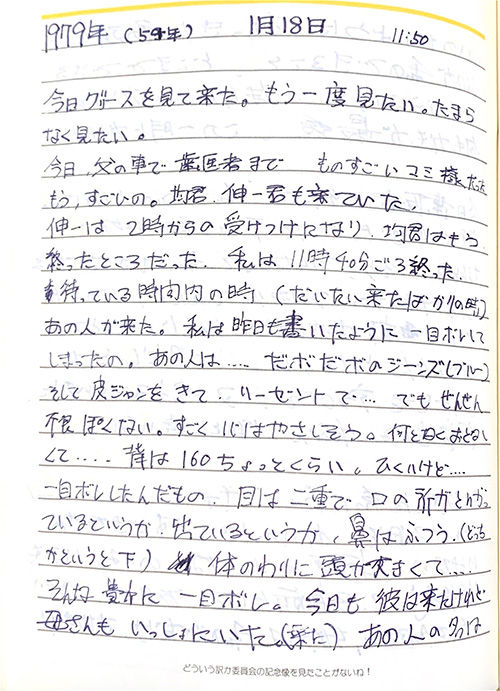 1979年 (54年) 1月18日 11:50
今日グリースを見て来た。もう一度見たい。たまら
なく見たい。
今日、父の車で歯医者まで ものすごいコミ様だった
もう、すごいの。均君、伸一君も来ていた。
伸一は2時からの受けつけになり、均君はもう
終ったところだった。私は11時40分ごろ終った。
待っている時間内の時 (だいたい来たばかりの時)
あの人が来た。私は昨日も書いたように一目ボレして
しまったの。あの人は‥‥ だボだボのジーンズ(ブルー)
そして皮ジャンをきて、リーゼントで‥‥ でもぜんぜん
不良ぽくない。すごく心はやさしそう。何となくおとなし
くて‥‥ 背は160ちょっとくらい。ひくいけど‥‥
一目ボレしたんだもの。目は二重で 口の所がとんがっ
ているというか、出ているというか、鼻はふつう。(どっち
かというと下) 体のわりに頭が大きくて‥‥
そんな彼に一目ボレ。今日も彼は来たけれど
母さんもいっしょにいた。 あの人の
どういう訳か委員会の記念像を見たことがないね!